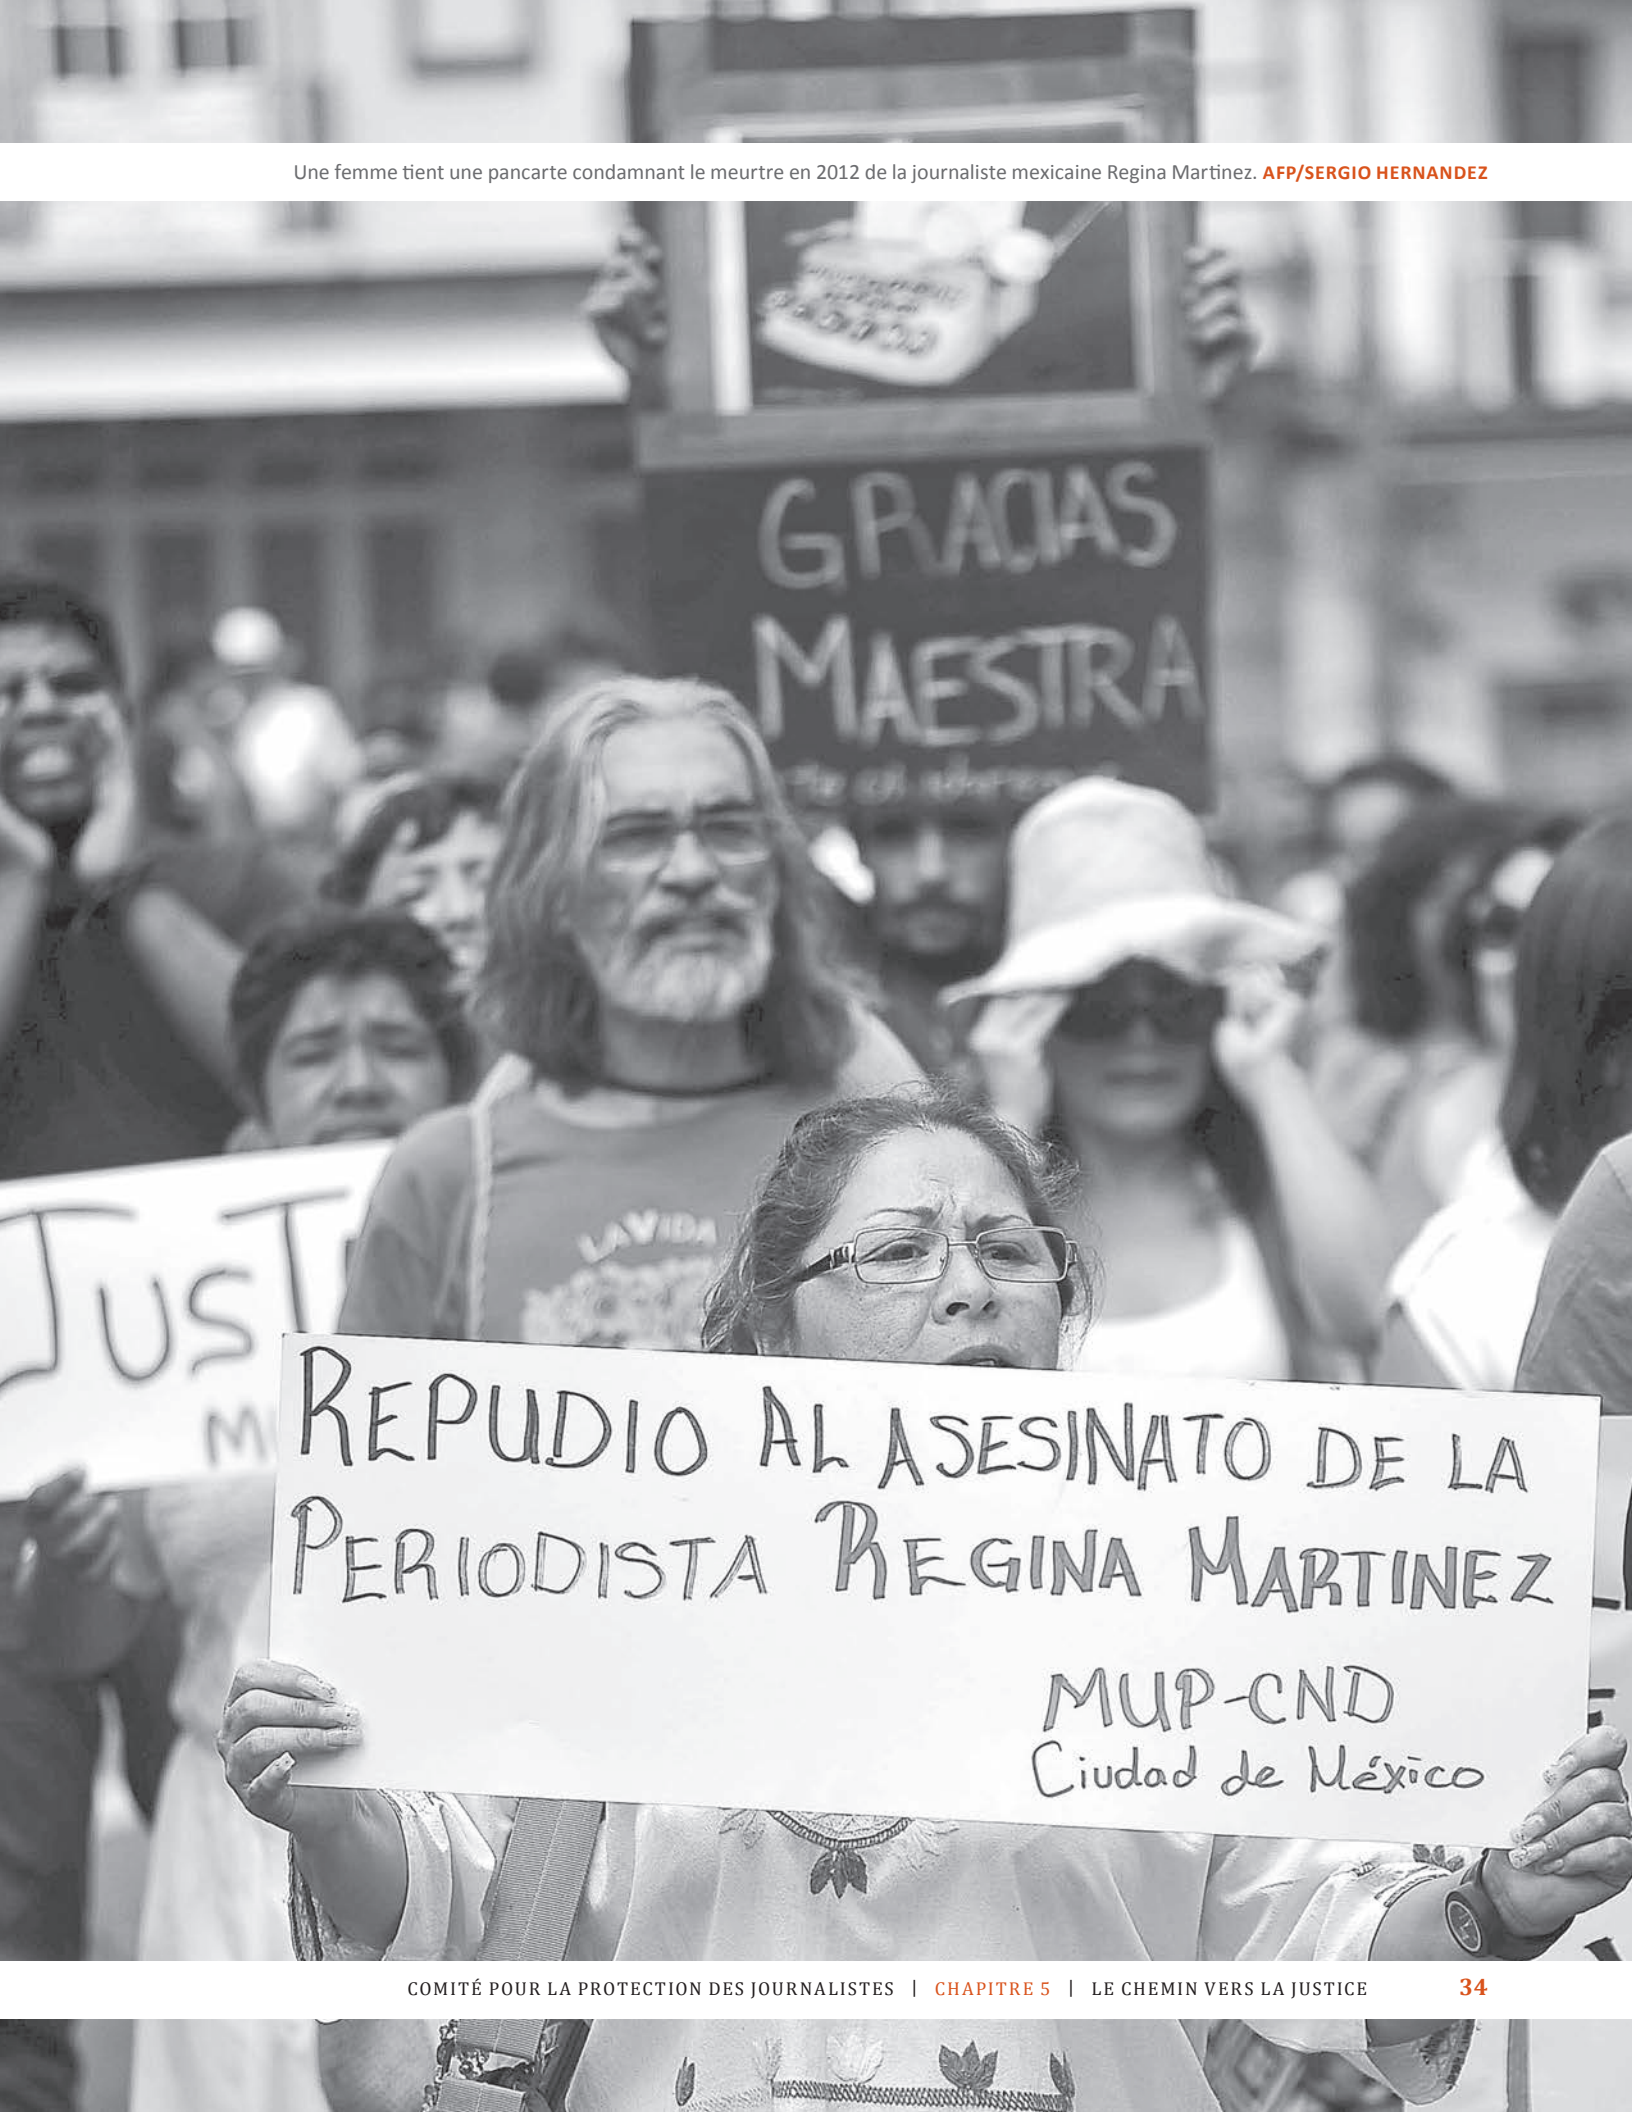 Une femme tient une pancarte condamnant le meurtre en 2012 de la journaliste mexicaine Regina Martinez. AFP/SERGIO HERNANDEZ
GRACIAS
MAESTRA
LA VIDA
JUST
M
REPUDIO AL ASESINATO DE LA
PERIODISTA REGINA MARTINEZ
MUP-CND
Ciudad de México
COMITÉ POUR LA PROTECTION DES JOURNALISTES | CHAPITRE 5 | LE CHEMIN VERS LA JUSTICE 34